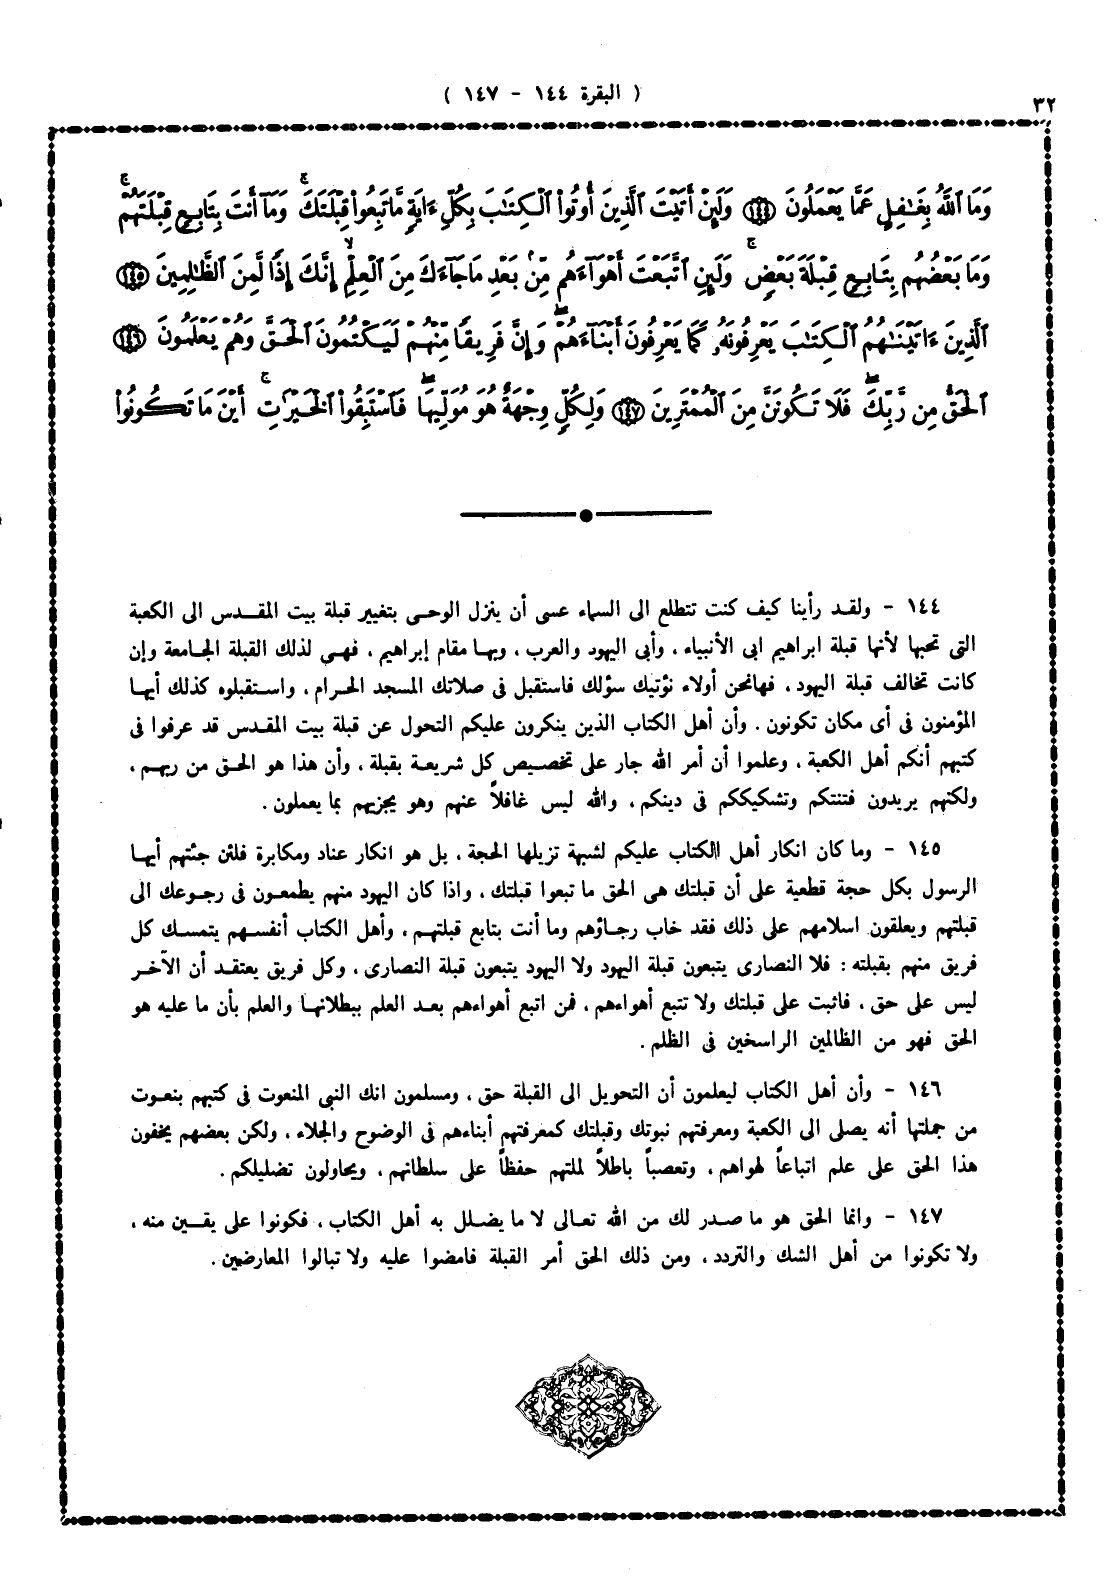 ( البقرة ١٤٤ - ١٤٧ )
٣٢
وَمَا ٱللَّهُ بِغَٰفِلٍ عَمَّا يَعْمَلُونَ ١٤٤ وَلَئِنْ أَتَيْتَ ٱلَّذِينَ أُوتُوا۟ ٱلْكِتَٰبَ بِكُلِّ ءَايَةٍ مَّا تَبِعُوا۟ قِبْلَتَكَ ۚ وَمَآ أَنتَ بِتَابِعٍ قِبْلَتَهُمْ ۚ
وَمَا بَعْضُهُم بِتَابِعٍ قِبْلَةَ بَعْضٍ ۚ وَلَئِنِ ٱتَّبَعْتَ أَهْوَآءَهُم مِّنۢ بَعْدِ مَا جَآءَكَ مِنَ ٱلْعِلْمِ ۙ إِنَّكَ إِذًا لَّمِنَ ٱلظَّٰلِمِينَ ١٤٥
ٱلَّذِينَ ءَاتَيْنَٰهُمُ ٱلْكِتَٰبَ يَعْرِفُونَهُۥ كَمَا يَعْرِفُونَ أَبْنَآءَهُمْ ۖ وَإِنَّ فَرِيقًا مِّنْهُمْ لَيَكْتُمُونَ ٱلْحَقَّ وَهُمْ يَعْلَمُونَ ١٤٦
ٱلْحَقُّ مِن رَّبِّكَ ۖ فَلَا تَكُونَنَّ مِنَ ٱلْمُمْتَرِينَ ١٤٧ وَلِكُلٍّ وِجْهَةٌ هُوَ مُوَلِّيهَا ۖ فَٱسْتَبِقُوا۟ ٱلْخَيْرَٰتِ ۚ أَيْنَ مَا تَكُونُوا۟
١٤٤ - ولقد رأينا كيف كنت تتطلع الى السماء عسى أن ينزل الوحى بتغيير قبلة بيت المقدس الى الكعبة
التى تحبها لأنها قبلة ابراهيم ابى الأنبياء ، وأبى اليهود والعرب ، وبها مقام إبراهيم ، فهى لذلك القبلة الجامعة وإن
كانت تخالف قبلة اليهود ، فهانحن أولاء نؤتيك سؤلك فاستقبل فى صلاتك المسجد الحرام ، واستقبلوه كذلك أيها
المؤمنون فى أى مكان تكونون . وأن أهل الكتاب الذين ينكرون عليكم التحول عن قبلة بيت المقدس قد عرفوا فى
كتبهم أنكم أهل الكعبة ، وعلموا أن أمر الله جار على تخصيص كل شريعة بقبلة ، وأن هذا هو الحق من ربهم ،
ولكنهم يريدون فتنتكم وتشكيككم فى دينكم ، والله ليس غافلاً عنهم وهو يجزيهم بما يعملون .
١٤٥ - وما كان انكار أهل الكتاب عليكم لشبهة تزيلها الحجة ، بل هو انكار عناد ومكابرة فلئن جئتهم أيها
الرسول بكل حجة قطعية على أن قبلتك هى الحق ما تبعوا قبلتك ، واذا كان اليهود منهم يطمعون فى رجوعك الى
قبلتهم ويعلقون اسلامهم على ذلك فقد خاب رجاؤهم وما أنت بتابع قبلتهم ، وأهل الكتاب أنفسهم يتمسك كل
فريق منهم بقبلته : فلا النصارى يتبعون قبلة اليهود ولا اليهود يتبعون قبلة النصارى ، وكل فريق يعتقد أن الآخر
ليس على حق ، فاثبت على قبلتك ولا تتبع أهواءهم ، فمن اتبع أهواءهم بعد العلم ببطلانها والعلم بأن ما عليه هو
الحق فهو من الظالمين الراسخين فى الظلم .
١٤٦ - وأن أهل الكتاب ليعلمون أن التحويل الى القبلة حق ، ومسلمون انك النبى المنعوت فى كتبهم بنعوت
من جملتها أنه يصلى الى الكعبة ومعرفتهم نبوتك وقبلتك كمعرفتهم أبناءهم فى الوضوح والجلاء ، ولكن بعضهم يخفون
هذا الحق على علم اتباعاً لهواهم ، وتعصباً باطلاً لملتهم حفظاً على سلطانهم ، ويحاولون تضليلكم .
١٤٧ - وانما الحق هو ما صدر لك من الله تعالى لا ما يضلل به أهل الكتاب ، فكونوا على يقين منه ،
ولا تكونوا من أهل الشك والتردد ، ومن ذلك الحق أمر القبلة فامضوا عليه ولا تبالوا المعارضين .